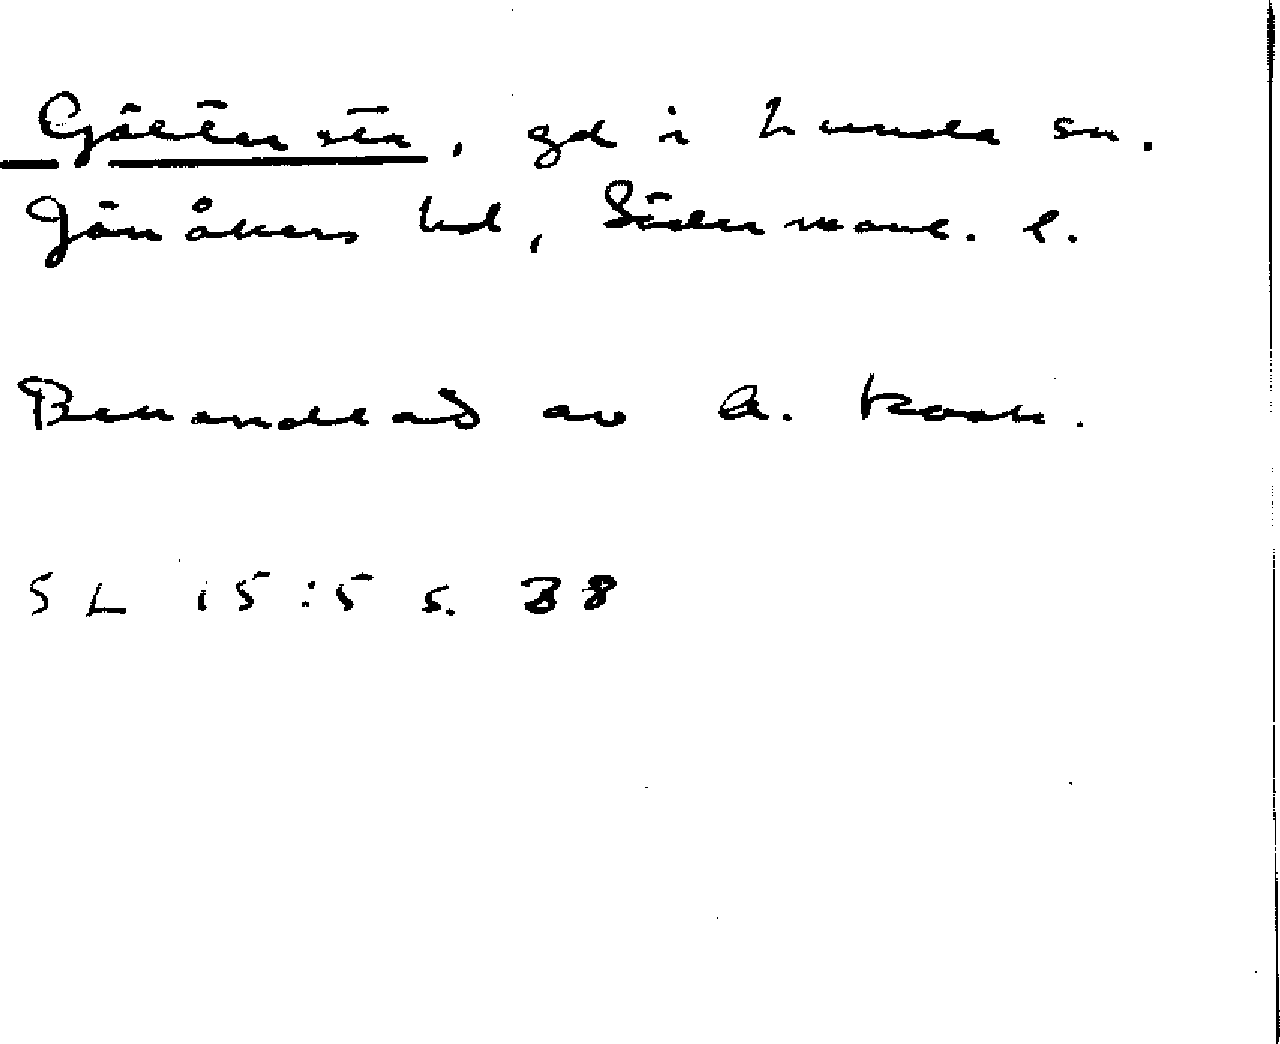 Gältersta, gd i Lunda sn.
Jönåkers hd, Södermanl. l.
Behandlad av A. Kock.
SL 15:5 s. 38